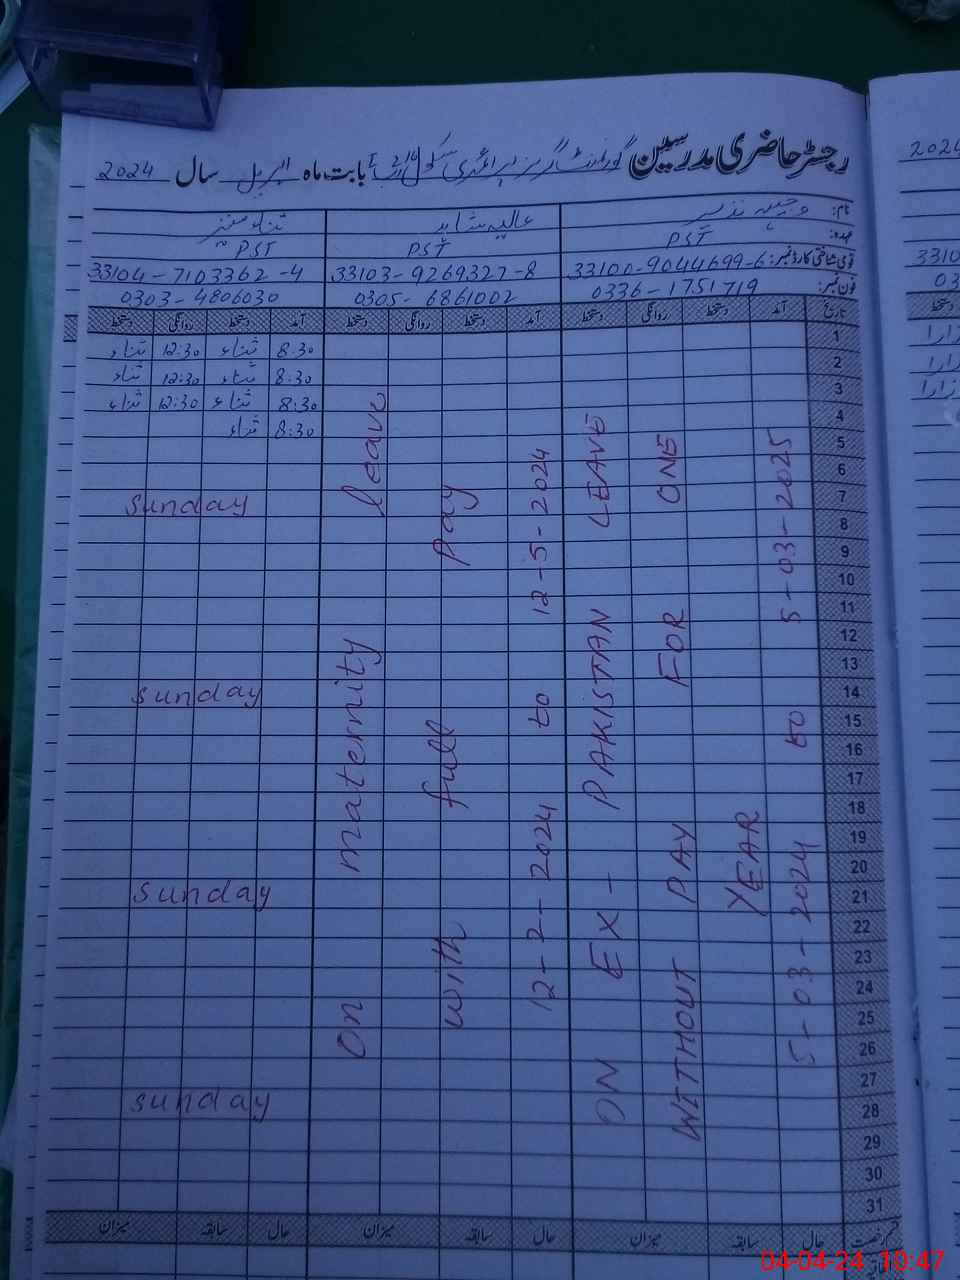 رجسٹر حاضری مدرسین گورنمنٹ گرلز پرائمری سکول بابت ماہ اپریل سال 2024
2024
نام: وجیہہ نذیر عالیہ شاہد ثناء
عہدہ: PST PST PST
قومی شناختی کارڈ نمبر: 33100-9044699-6 33103-9269327-8 33104-7103362-4
فون نمبر: 0336-1751719 0305-6861002 0303-4806030
3310
03
تاریخ آمد دستخط روانگی دستخط آمد دستخط روانگی دستخط آمد دستخط روانگی دستخط
1 8:30 ثناء 12:30 ثناء
2 8:30 ثناء 12:30 ثناء
3 8:30 ثناء 12:30 ثناء
4 8:30 ثناء
5
6
7 Sunday
8
9
10
11
12
13
14 Sunday
15
16
17
18
19
20
21 Sunday
22
23
24
25
26
27
28 Sunday
29
30
31
On maternity leave
with full pay
12-2-2024 to 12-5-2024
ON EX-PAKISTAN LEAVE
WITHOUT PAY FOR ONE
YEAR
5-03-2024 to 5-03-2025
قسم رخصت حال سابقہ میزان حال سابقہ میزان حال سابقہ میزان
04-04-24 10:47